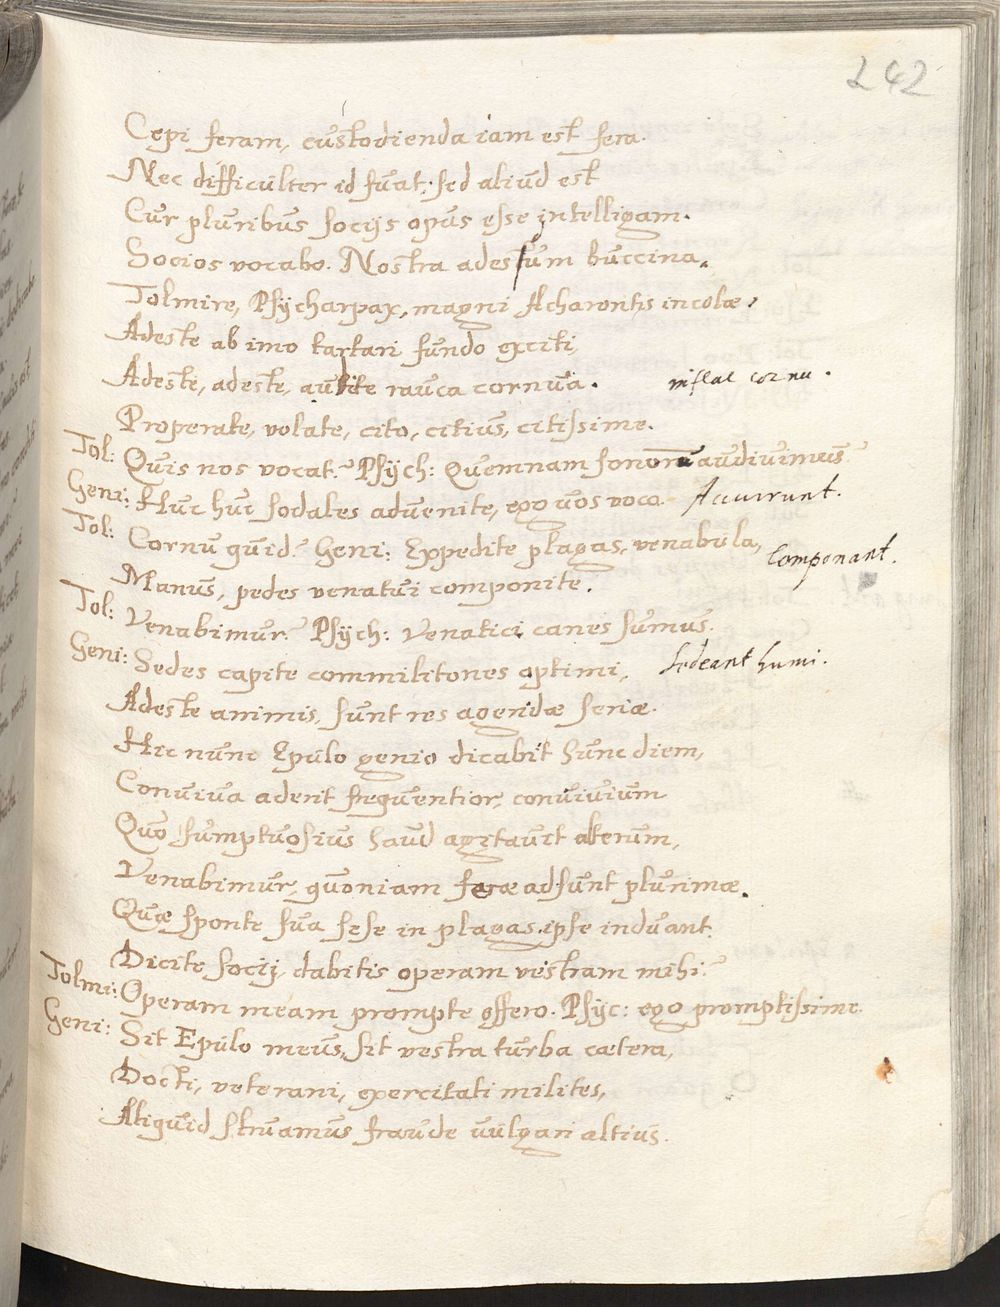 242
Cepi feram, custodienda iam est fera.
Nec difficulter id fuat, sed aliud est
Cur pluribus socijs opus esse intelligam.
Socios vocabo. Nostra adestum buccina.
Tolmire, Psÿcharpax, magni Acharontis incolæ,
Adeste ab imo tartari fundo exciti,
Adeste, adeste, audite rauca cornua. inflat cornu.
Properate, volate, cito, citius, citissime.
Tol: Quis nos vocat? Psÿch: Quemnam sonorum audiuimus?
Geni: Huc huc sodales aduenite, ego uos voco. Accurrunt.
Tol: Cornu quid? Geni: Expedite plagas, venabula, Componant.
Manus, pedes venatui componite.
Tol: Venabimur? Psÿch: Venatici canes sumus.
Geni: Sedes capite commilitones optimi, sedeant humi.
Adeste animis, sunt res agendæ seriæ.
Hic nunc Epulo genio dicabit hunc diem,
Conuiua aderit frequentior, conuiuium
Quo sumptuosius haud agitauit alterum,
Venabimur, quoniam feræ adsunt plurimæ.
Quæ sponte sua sese in plagas ipse induant.
Dicite socij, dabitis operam vestram mihi?
Tolmi: Operam meam prompte offero. Psÿc: ego promptissime.
Geni: Sit Epulo meus, sit vestra turba cætera,
Docti, veterani, exercitati milites,
Aliquid struamus fraude uulgari altius.